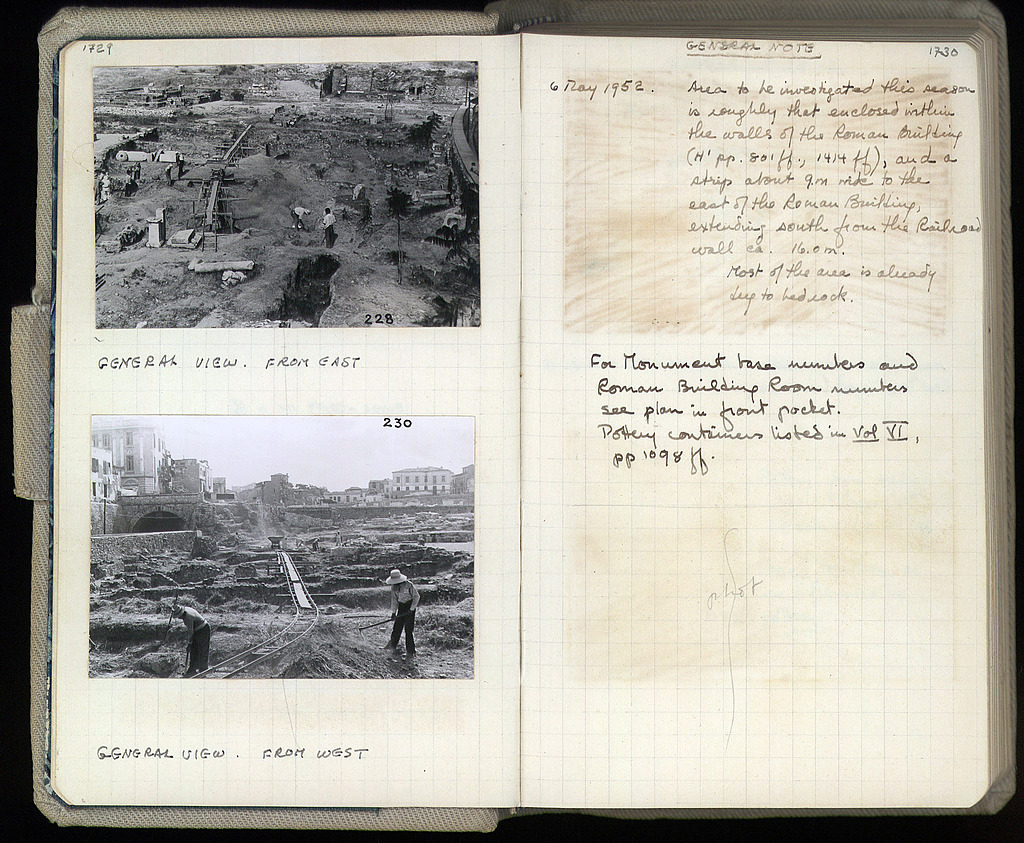 1729
228
GENERAL VIEW. FROM EAST
230
GENERAL VIEW. FROM WEST
GENERAL NOTE
1730
6 May 1952. Area to be investigated this season
is roughly that enclosed within
the walls of the Roman Building
(H' pp. 801 ff., 1414 ff), and a
strip about 9m wide to the
east of the Roman Building,
extending south from the Railroad
wall ca. 16.0 m.
Most of the area is already
dug to bedrock.
For Monument base numbers and
Roman Building Room numbers
see plan in front pocket.
Pottery containers listed in Vol VI,
pp 1098 ff.